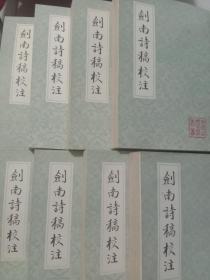 劍南詩稿校注
劍南詩稿校注
劍南詩稿校注
劍南詩稿校注
劍南詩稿校注
劍南詩稿校注
劍南詩稿校注
劍南詩稿校注